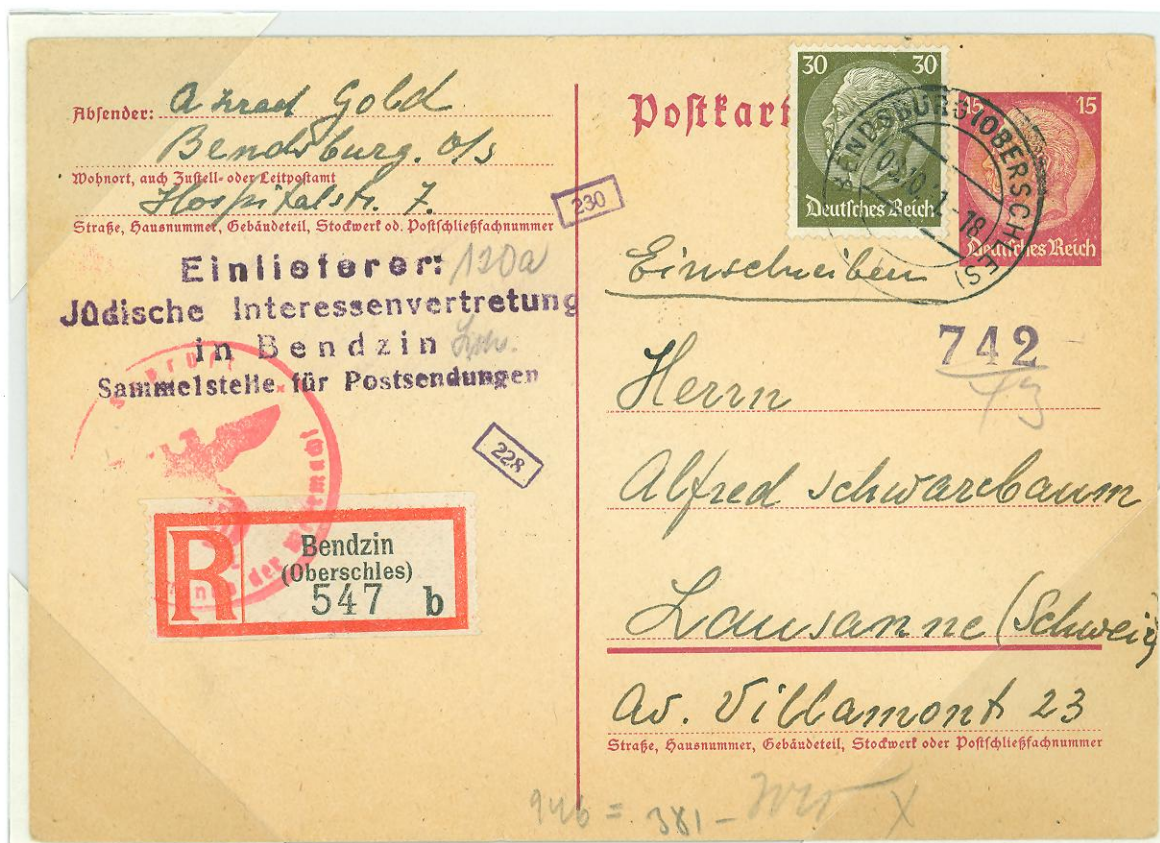 Absender: Azrael Gold
Bendsburg. O/S
Wohnort, auch Zustell- oder Leitpostamt
Hospitalstr. 7.
Straße, Hausnummer, Gebäudeteil, Stockwerk od. Postschließfachnummer
230
Einlieferer: 120a
Jüdische Interessenvertretung
in Bendzin
Sammelstelle für Postsendungen
228
der Wehrmacht
R
Bendzin
(Oberschles)
547 b
Postkart
30 30
Deutsches Reich
BENDSBURG (OBERSCHLES)
15 15
Deutsches Reich
Einschreiben
742
Herrn
Alfred Schwarcbaum
Lausanne (Schweiz)
Av. Villamont 23
Straße, Hausnummer, Gebäudeteil, Stockwerk oder Postschließfachnummer
946 = 381 -